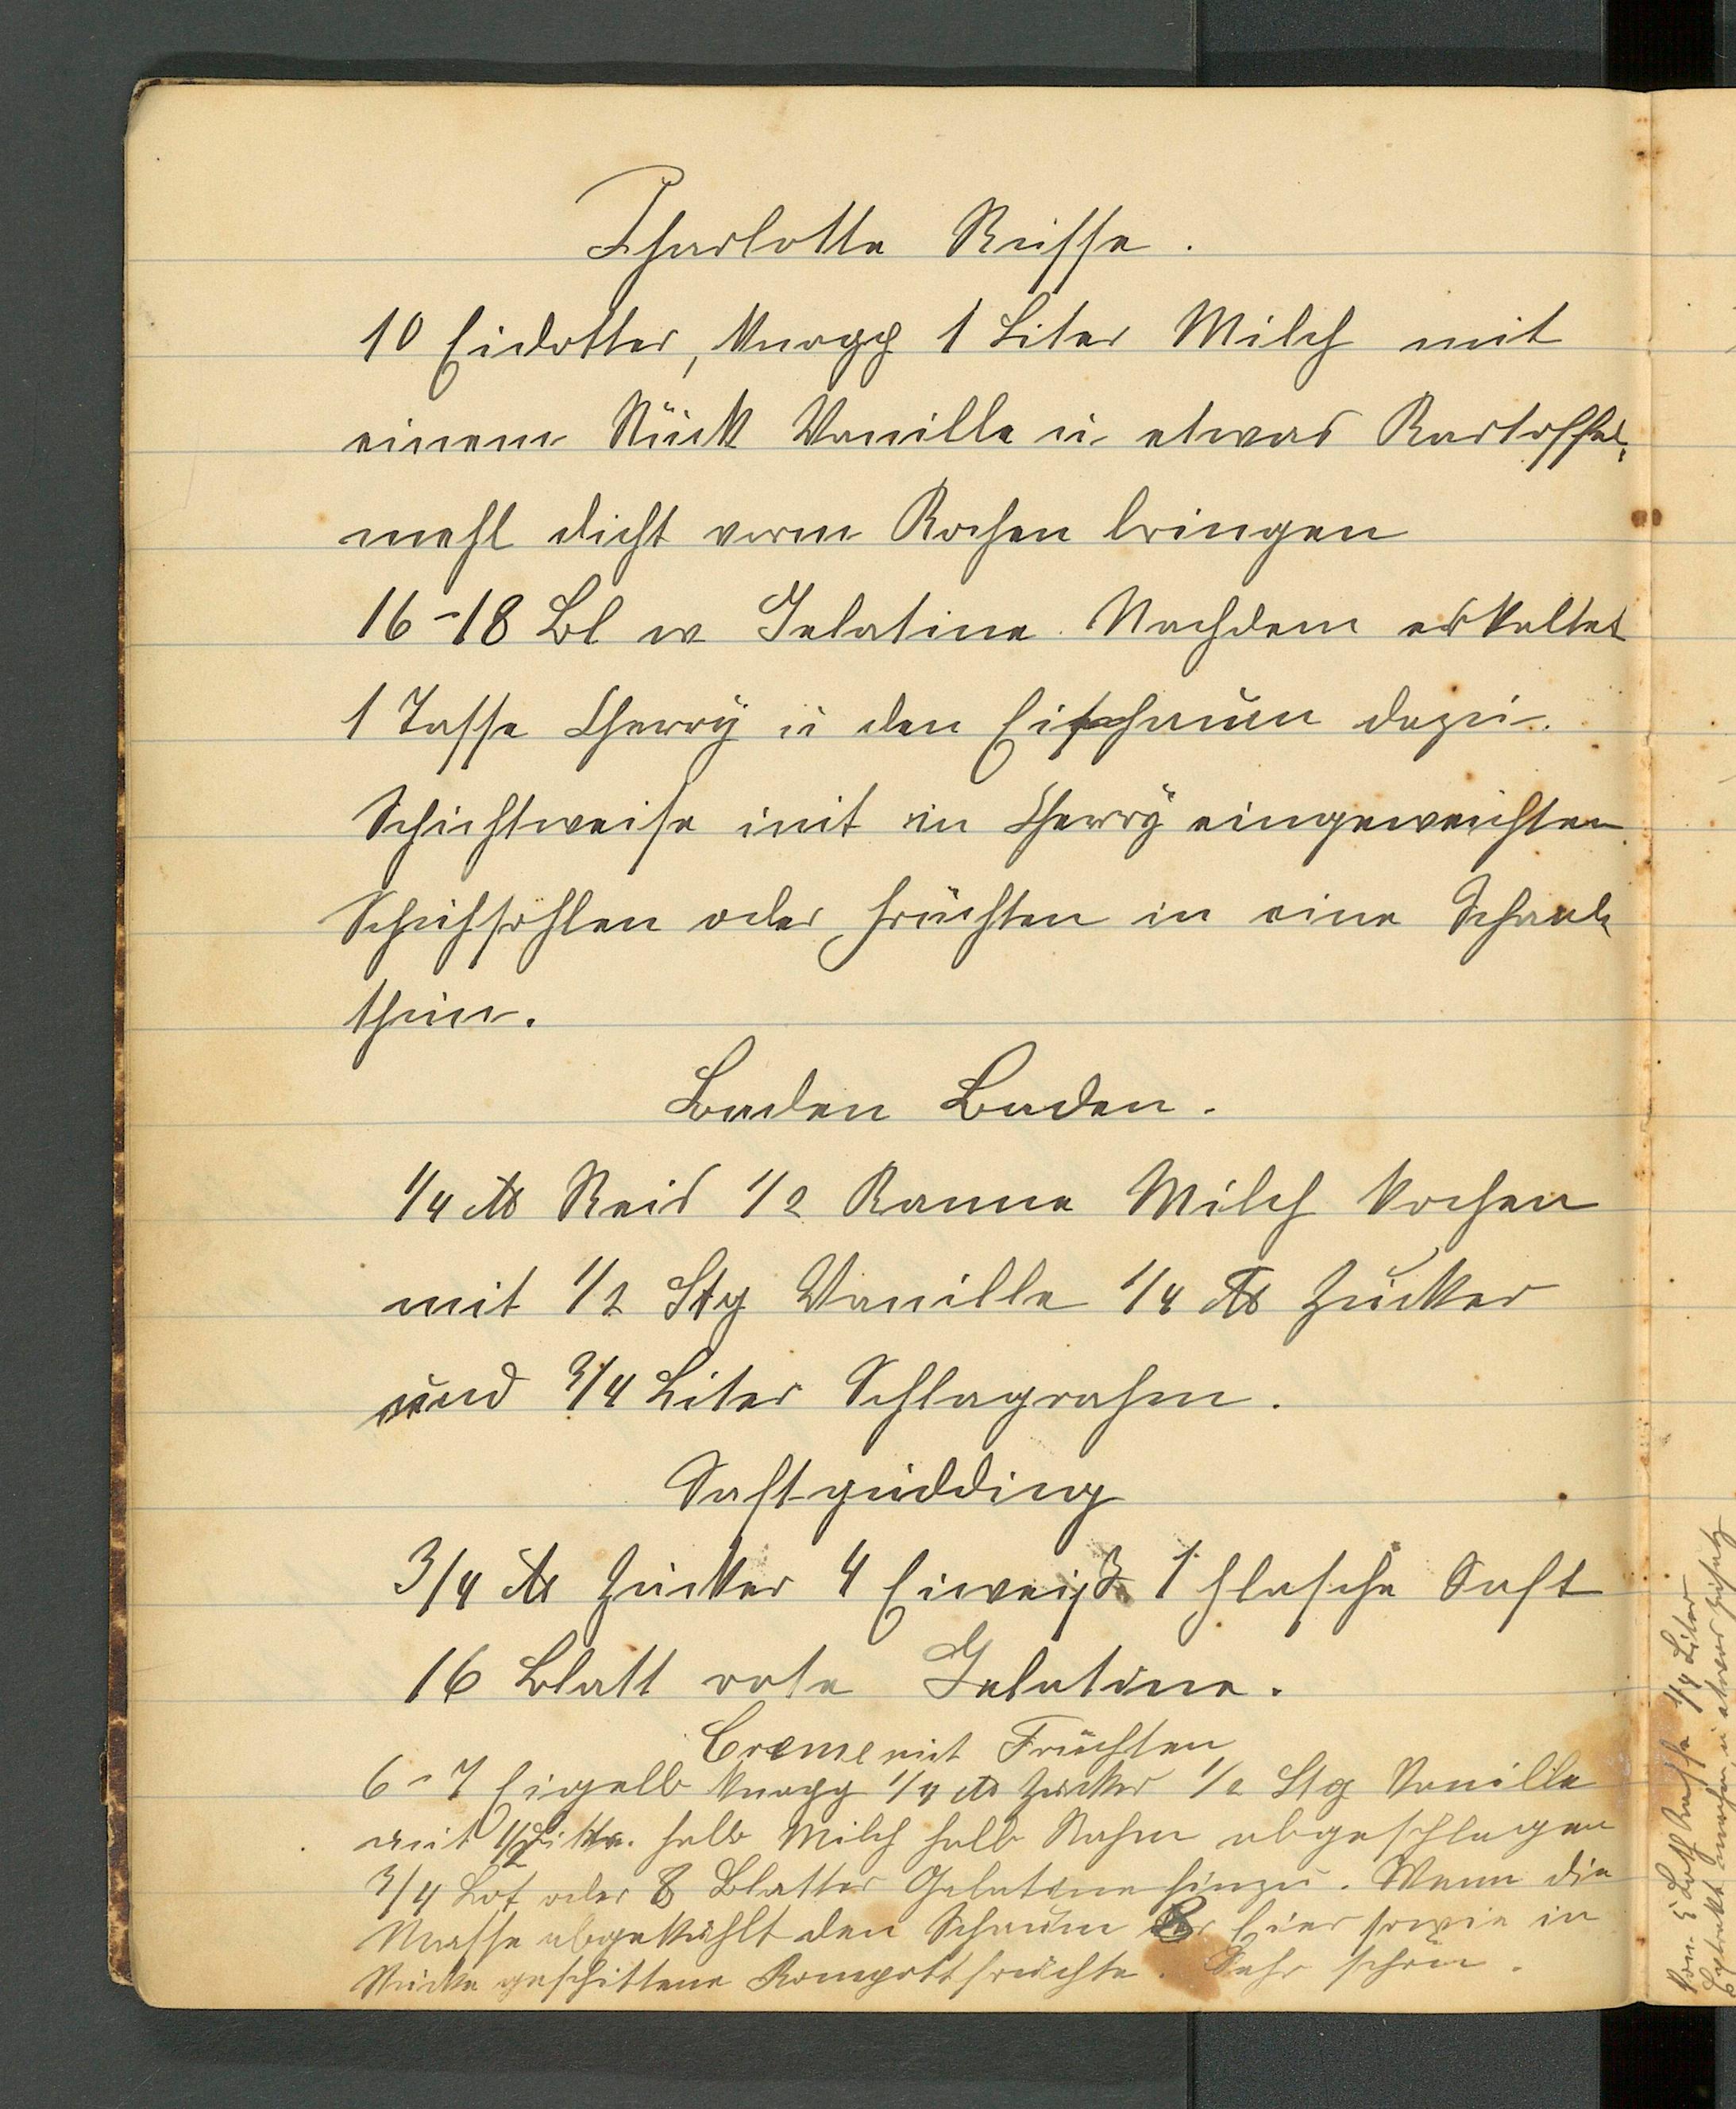 Charlotte Russe.
10 Eidotter, knapp 1 Liter Milch mit
einem Stück Vanille u. etwas Kartoffel-
mehl dicht vorm Kochen bringen
16-18 Bl w Gelatine. Nachdem erkaltet
1 Tasse Cherry u den Eischaum dazu.
Schichtweise mit in Cherry eingeweichten
Schuhsohlen oder Früchten in eine Schaale
thun.
Baden Baden.
1/4 ℔ Reis 1/2 Kanne Milch kochen
mit 1/2 Stg Vanille 1/4 ℔ Zucker
und 3/4 Liter Schlagrahm.
Saftpudding
3/4 ℔ Zucker 4 Eiweiß 1 Flasche Saft
16 Blatt rote Gelatine.
Creme mit Früchten
6-7 Eigelb knapp 1/4 ℔ Zucker 1/2 Stg Vanille
mit 1/2 Liter halb Milch halb Rahm abgeschlagen
3/4 Lot oder 8 Blatter Gelatine hinzu. Wenn die
Masse abgekühlt den Schaum der Eier sowie in
Stücke geschittene Kompottfrüchte. Sehr schön.
Von 5 Loth Kaffe 1/4 Liter
Extrakt machen u etwas